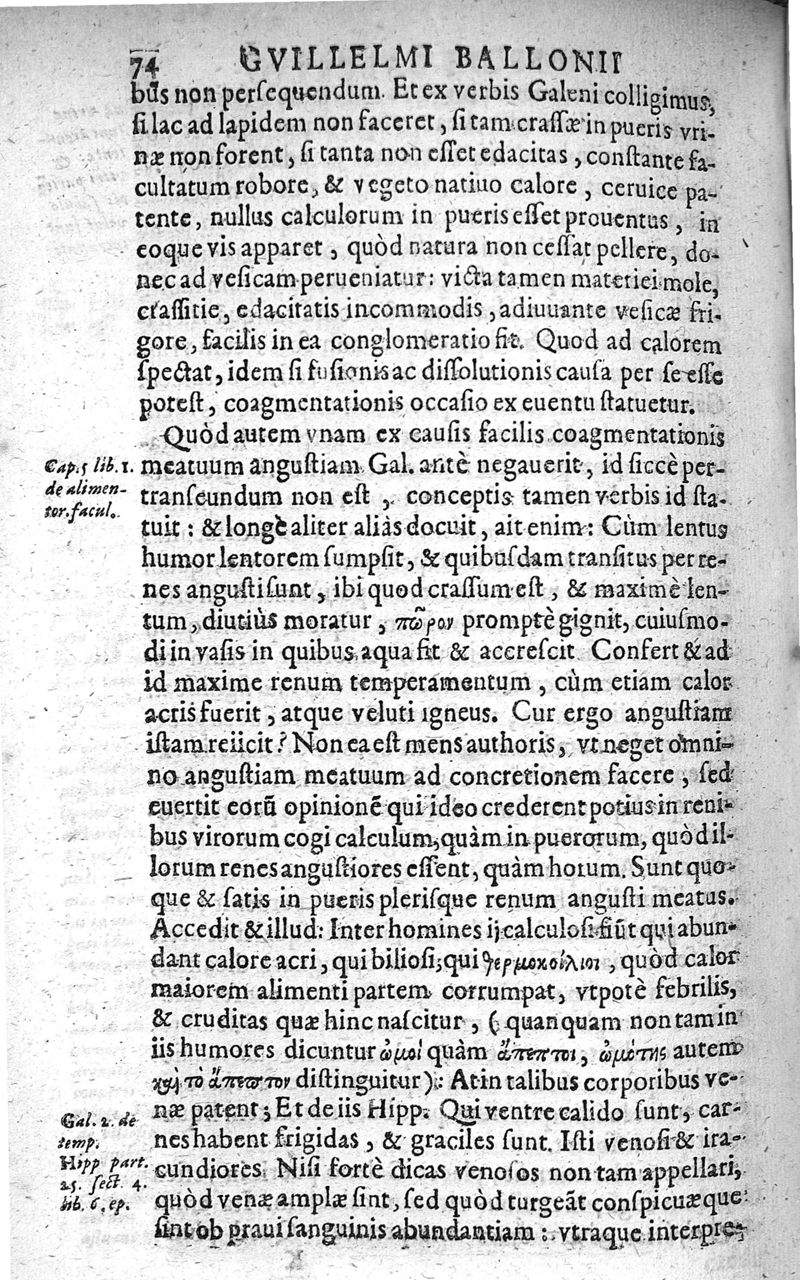 74 GVILLELMI BALLONII
bus non persequendum. Et ex verbis Galeni colligimus,
si lac ad lapidem non faceret, si tam crassæ in pueris vri-
næ non forent, si tanta non esset edacitas, constante fa-
cultatum robore, & vegeto natiuo calore, ceruice pa-
tente, nullus calculorum in pueris esset prouentus, in
eoque vis apparet, quòd natura non cessat pellere, do-
nec ad vesicam perueniatur: victa tamen materiei mole,
crassitie, edacitatis incommodis, adiuuante vesicæ fri-
gore, facilis in ea conglomeratio fit. Quod ad calorem
spectat, idem si fusionis ac dissolutionis causa per se esse
potest, coagmentationis occasio ex euentu statuetur.
Quòd autem vnam ex causis facilis coagmentationis
Cap. 5 lib. 1.
de alimen-
tor. facul.
meatuum angustiam Gal. antè negauerit, id siccè per-
transeundum non est, conceptis tamen verbis id sta-
tuit: & longè aliter aliàs docuit, ait enim: Cùm lentus
humor lentorem sumpsit, & quibusdam transitus per re-
nes angusti sunt, ibi quod crassum est, & maximè len-
tum, diutiùs moratur, πῶρον promptè gignit, cuiusmo-
di in vasis in quibus aqua fit & accrescit Confert & ad
id maxime renum temperamentum, cùm etiam calor
acris fuerit, atque veluti igneus. Cur ergo angustiam
istam reiicit? Non ea est mens authoris, vt neget omni-
no angustiam meatuum ad concretionem facere, sed
euertit eorū opinionē qui ideo crederent potius in reni-
bus virorum cogi calculum, quàm in puerorum, quòd il-
lorum renes angustiores essent, quàm horum. Sunt quo-
que & satis in pueris plerisque renum angusti meatus.
Accedit & illud: Inter homines ij calculosi fiūt qui abun-
dant calore acri, qui biliosi, qui θερμοκοίλιοι, quòd calor
maiorem alimenti partem corrumpat, vtpotè febrilis,
& cruditas quæ hinc nascitur, (quanquam non tam in
iis humores dicuntur ὠμοί quàm ἄπεπτοι, ὠμότης autem
καὶ τὸ ἄπεπτον distinguitur): At in talibus corporibus ve-
Gal. 2. de
temp.
Hipp part.
25. sect. 4.
lib. 6. ep.
næ patent; Et de iis Hipp. Qui ventre calido sunt, car-
nes habent frigidas, & graciles sunt. Isti venosi & ira-
cundiores. Nisi fortè dicas venosos non tam appellari,
quòd venæ amplæ sint, sed quòd turgeāt conspicuæque
sint ob praui sanguinis abundantiam: vtraque interpre-